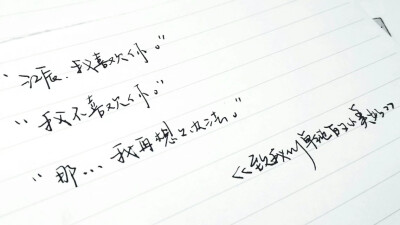 “江辰，我喜欢你。”
“我不喜欢你。”
“那…我再想个办法。”
《致我们单纯的小美好》